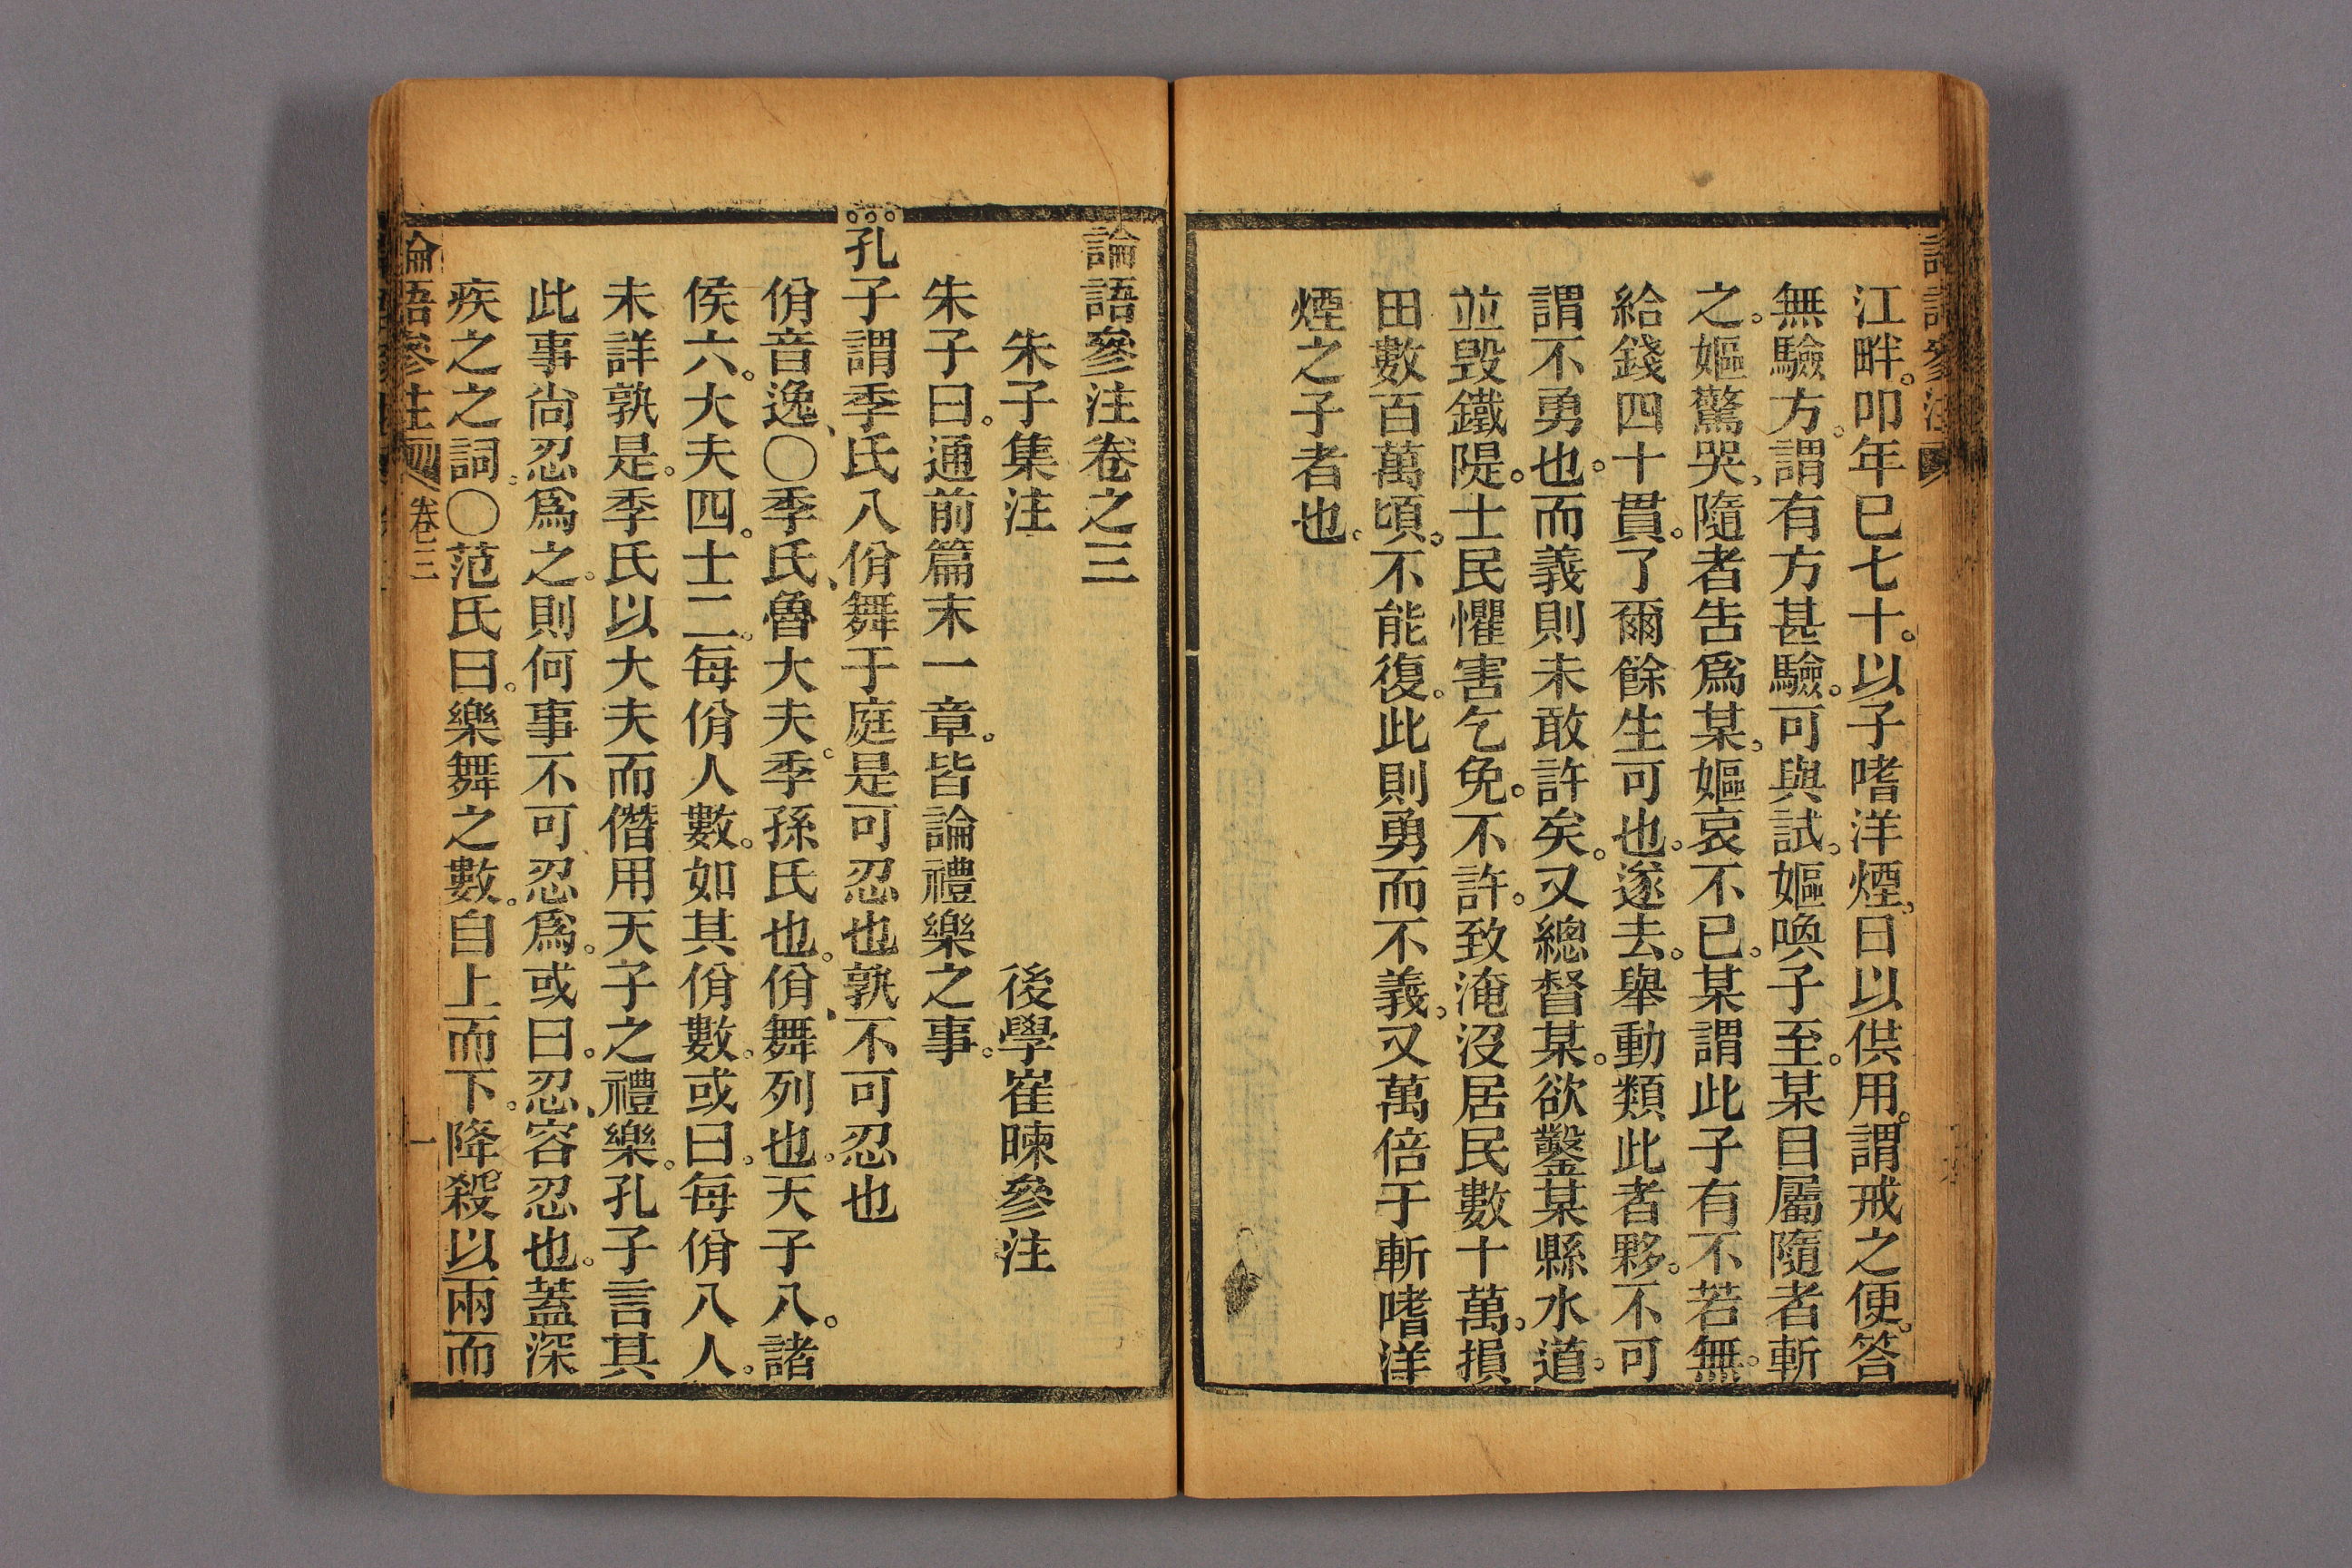 江畔。叩年已七十。以子嗜洋煙。日以供用。謂戒之便。答
無驗方。謂有方甚驗。可與試。嫗喚子至。某目屬隨者斬
之。嫗驚哭。隨者告爲某。嫗哀不已。某謂此子有不若無。
給錢四十貫。了爾餘生可也。遂去。舉動類此者夥。不可
謂不勇也。而義則未敢許矣。又總督某。欲鑿某縣水道。
並毀鐵隄。士民懼害乞免。不許。致淹沒居民數十萬。損
田數百萬頃。不能復。此則勇而不義。又萬倍于斬嗜洋
煙之子者也。
論語參注卷之三
朱子集注 後學崔暕參注
朱子曰。通前篇末一章。皆論禮樂之事。
孔子謂季氏八佾舞于庭是可忍也孰不可忍也
佾音逸、〇季氏、魯大夫。季孫氏也。佾、舞列也。天子八。諸
侯六。大夫四。士二。每佾人數。如其佾數。或曰。每佾八人。
未詳孰是。季氏以大夫而僭用天子之禮樂。孔子言其
此事尙忍爲之。則何事不可忍爲。或曰。忍、容忍也。蓋深
疾之之詞。〇范氏曰。樂舞之數。自上而下。降殺以兩而
論語參注 卷三 一